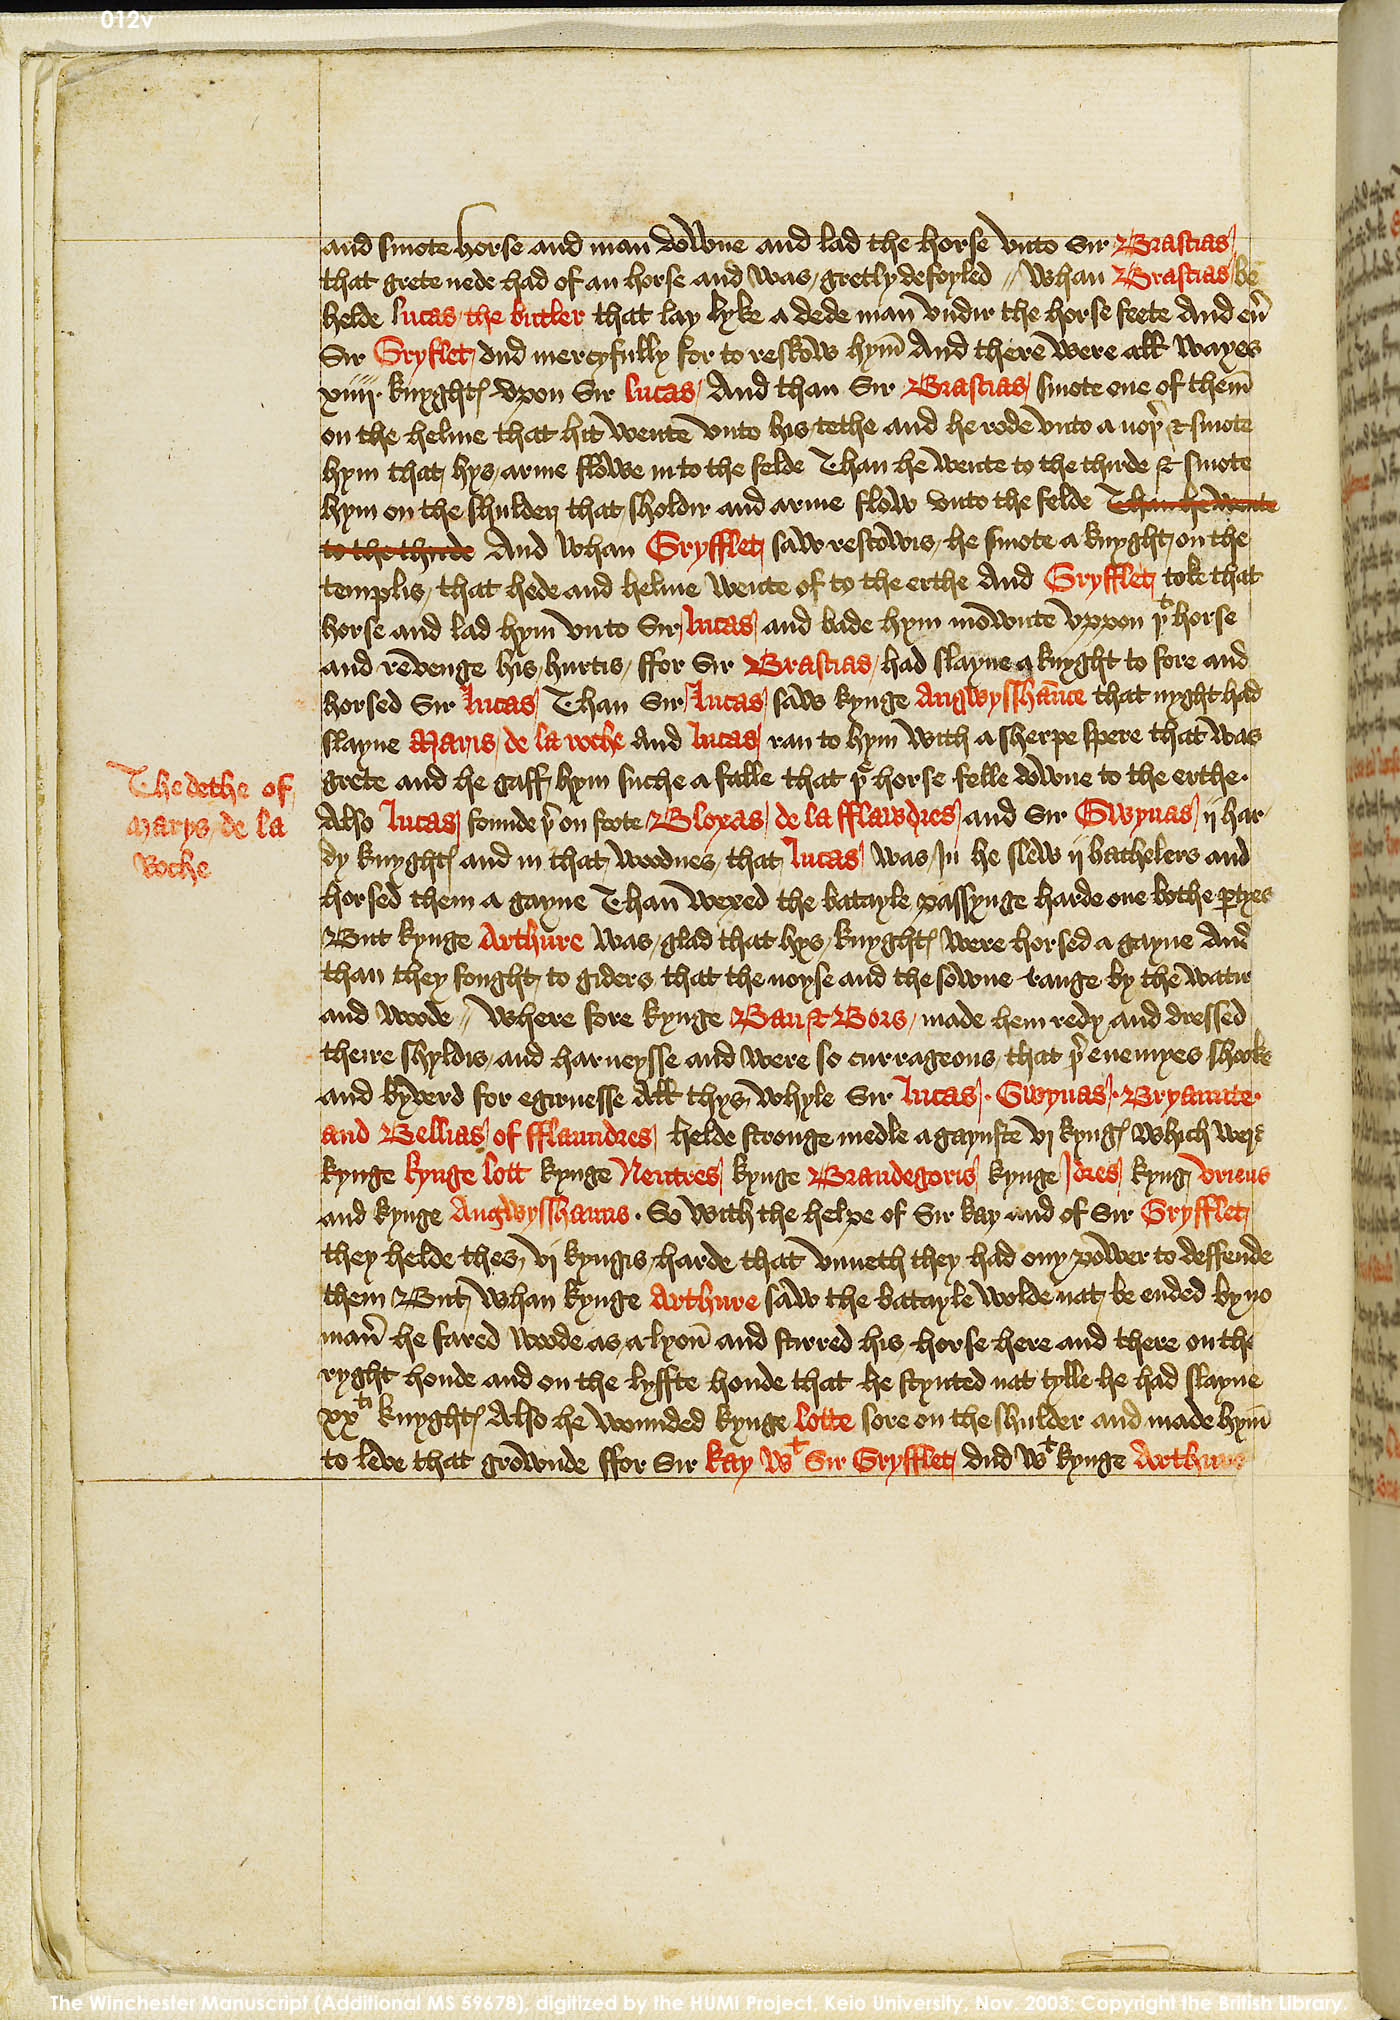 012v
and smote horse and man downe and lad the horse vnto Sir Brastias
that grete nede had of an horse and was gretly defoyled // Whan Brastias be
helde lucas the butler that lay lyke a dede man vndir the horse feete And eũ
Sir Gryflet dud mercyfully for to reskow hym̄ And there were all wayes
xiiij. knyghtꝭ vpon Sir lucas And than Sir Brastias smote one of them̄
on the helme that hit wente vnto his tethe and he rode vnto a noþ̉ & smote
hym that hys arme flowe in to the felde Than he wente to the thirde & smote
hym on the shulder that sholdir and arme flow vnto the felde Than he wente
to the thirde And whan Gryfflet saw rescowis he smote a knyght on the
templis that hede and helme wente of to the erthe And Gryfflet toke that
horse and lad hym vnto Sir lucas and bade hym mownte vppon þᵗ horse
and revenge his hurtis ffor Sir Brastias had slayne a knyght to fore and
horsed Sir lucas Than Sir lucas saw kynge Angwysshaunce that nyght had
slayne Maris de la roche And lucas ran to hym with a sherpe spere that was
grete and he gaff hym suche a falle that þᵉ horse felle downe to the erthe.
The dethe of
Marys de la
Roche
Also lucas founde þ̉ on foote Bloyas de la fflawdres and Sir Gwynas ij har
dy knyghtꝭ and in that woodnes that lucas was In he slew ij bathelers and
horsed them a gayne Than̄ wexed the batayle passynge harde one bothe ꝑtyes
But kynge Arthure was glad that hys knyghtꝭ were horsed a gayne And
than they fought to giders that the noyse and the sowne range by the watir
and woode // Where fore kynge Ban & Bors made hem redy and dressed
theire shyldis and harneysse and were so currageous that þ̉ enemyes shooke
and byverd for egirnesse All thys whyle Sir lucas . Gwynas . Bryaunte .
and Bellias of fflaundres helde stronge medle a gaynste vj kyngꝭ which were
kynge kynge lott kynge Nentres kynge Brandegoris kynge Idres kyng vriens
and kynge Angwysshauns . So with the helpe of Sir kay and of Sir Gryfflet
they helde thes vj kyngis harde that vnneth they had ony power to deffende
them But whan kynge Arthure saw the batayle wolde nat be ended by no
man̄ he fared woode as a lyon̄ and stirred his horse here and there on the
ryght honde and on the lyffte honde that he stynted nat tylle he had slayne
xxᵗⁱ knyghtꝭ Also he wounded kynge lotte sore on the shulder and made hym̄
to leve that grownde ffor Sir kay wᵗ Sir Gryfflet dud wᵗ kynge Arthure
The Winchester Manuscript (Additional MS 59678), digitized by the HUMI Project, Keio University, Nov. 2003; Copyright the British Library.